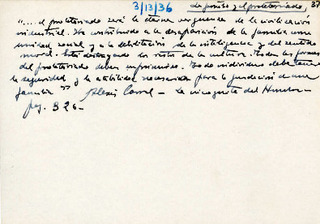 3/13/36 La prisión y el proletariado 87
"... el proletariado será la eterna vergüenza de la civilización
industrial. Ha contribuido a la desaparición de la familia como
unidad social y a la debilitación de la inteligencia y del sentido
moral. Está destruyendo los restos de la cultura. Todas las formas
del proletariado deben suprimirse. Todo individuo debe tener
la seguridad y la estabilidad necesarias para la fundación de una
familia" Alexis Carrel - La incógnita del Hombre -
pag. 326 -